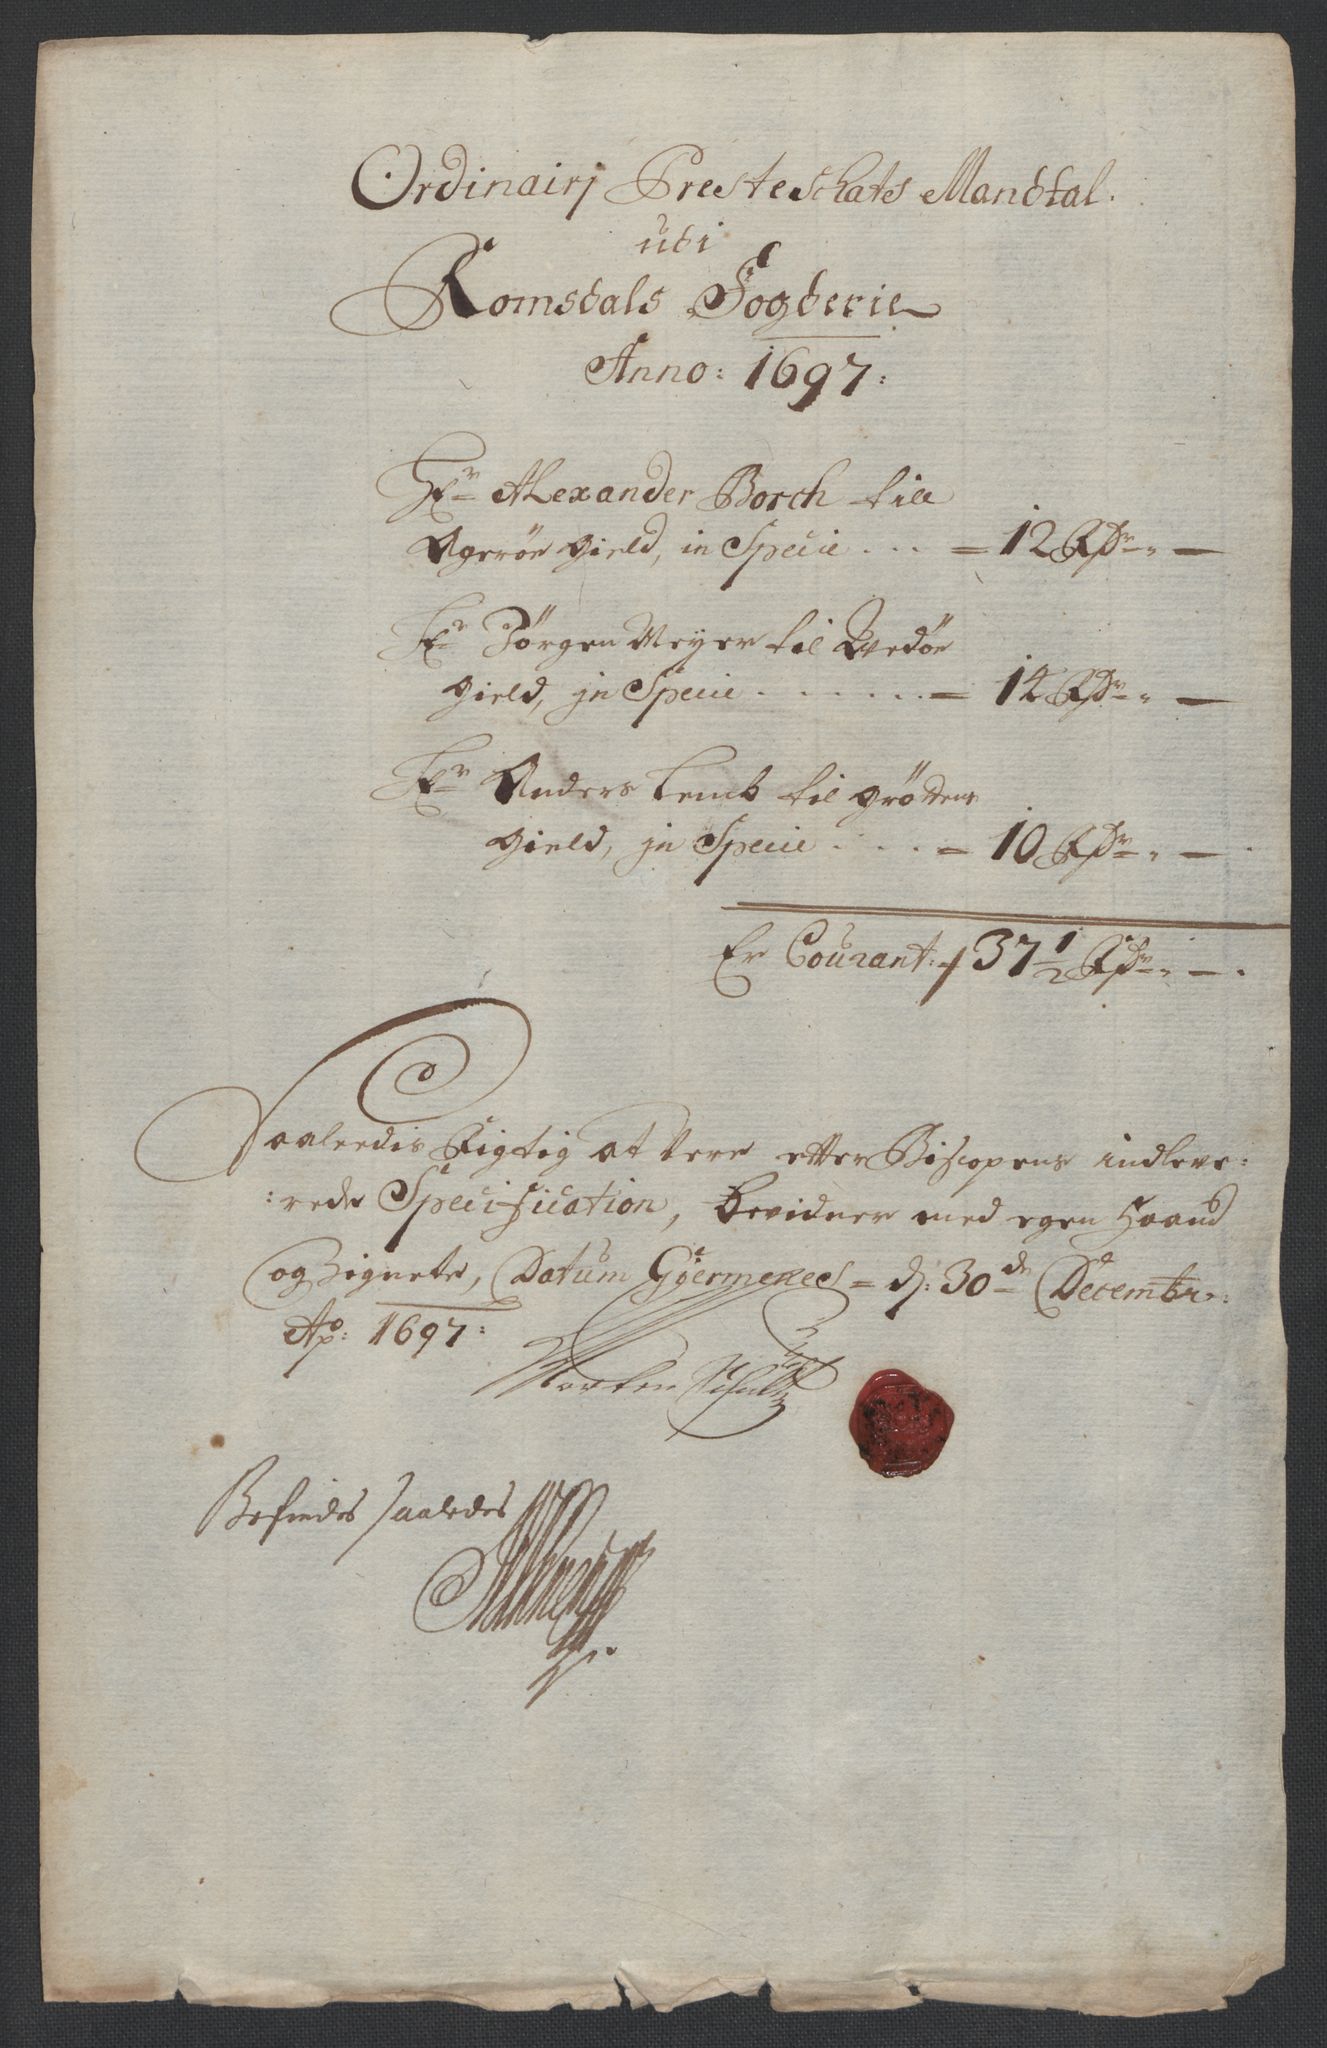 Ordinairj Presteschats Mandtal.
udi
Romsdals Fogderie
Anno: 1697:
Hr Alexander Borch till
Agerøe gield, in Specie . . . = 12 Rdr „ —
Hr Jørgen Meyer til Wedøe
gield, jn Specie . . . . . . = 14 Rdr „ —
Hr Anders Lemb til grøttens
gield, jn Specie . . . . = 10 Rdr „ —
Er Courant: 37 1/2 Rdr „ — .
Saaledis Rigtig at være efter Biscopens indleve:
:rede Specification, bevidner med egen Haand
og Zignete, Datum Gjermenes = d: 30de Decembr:
Ao: 1697:
Morten Schultz
Befindes saaledes